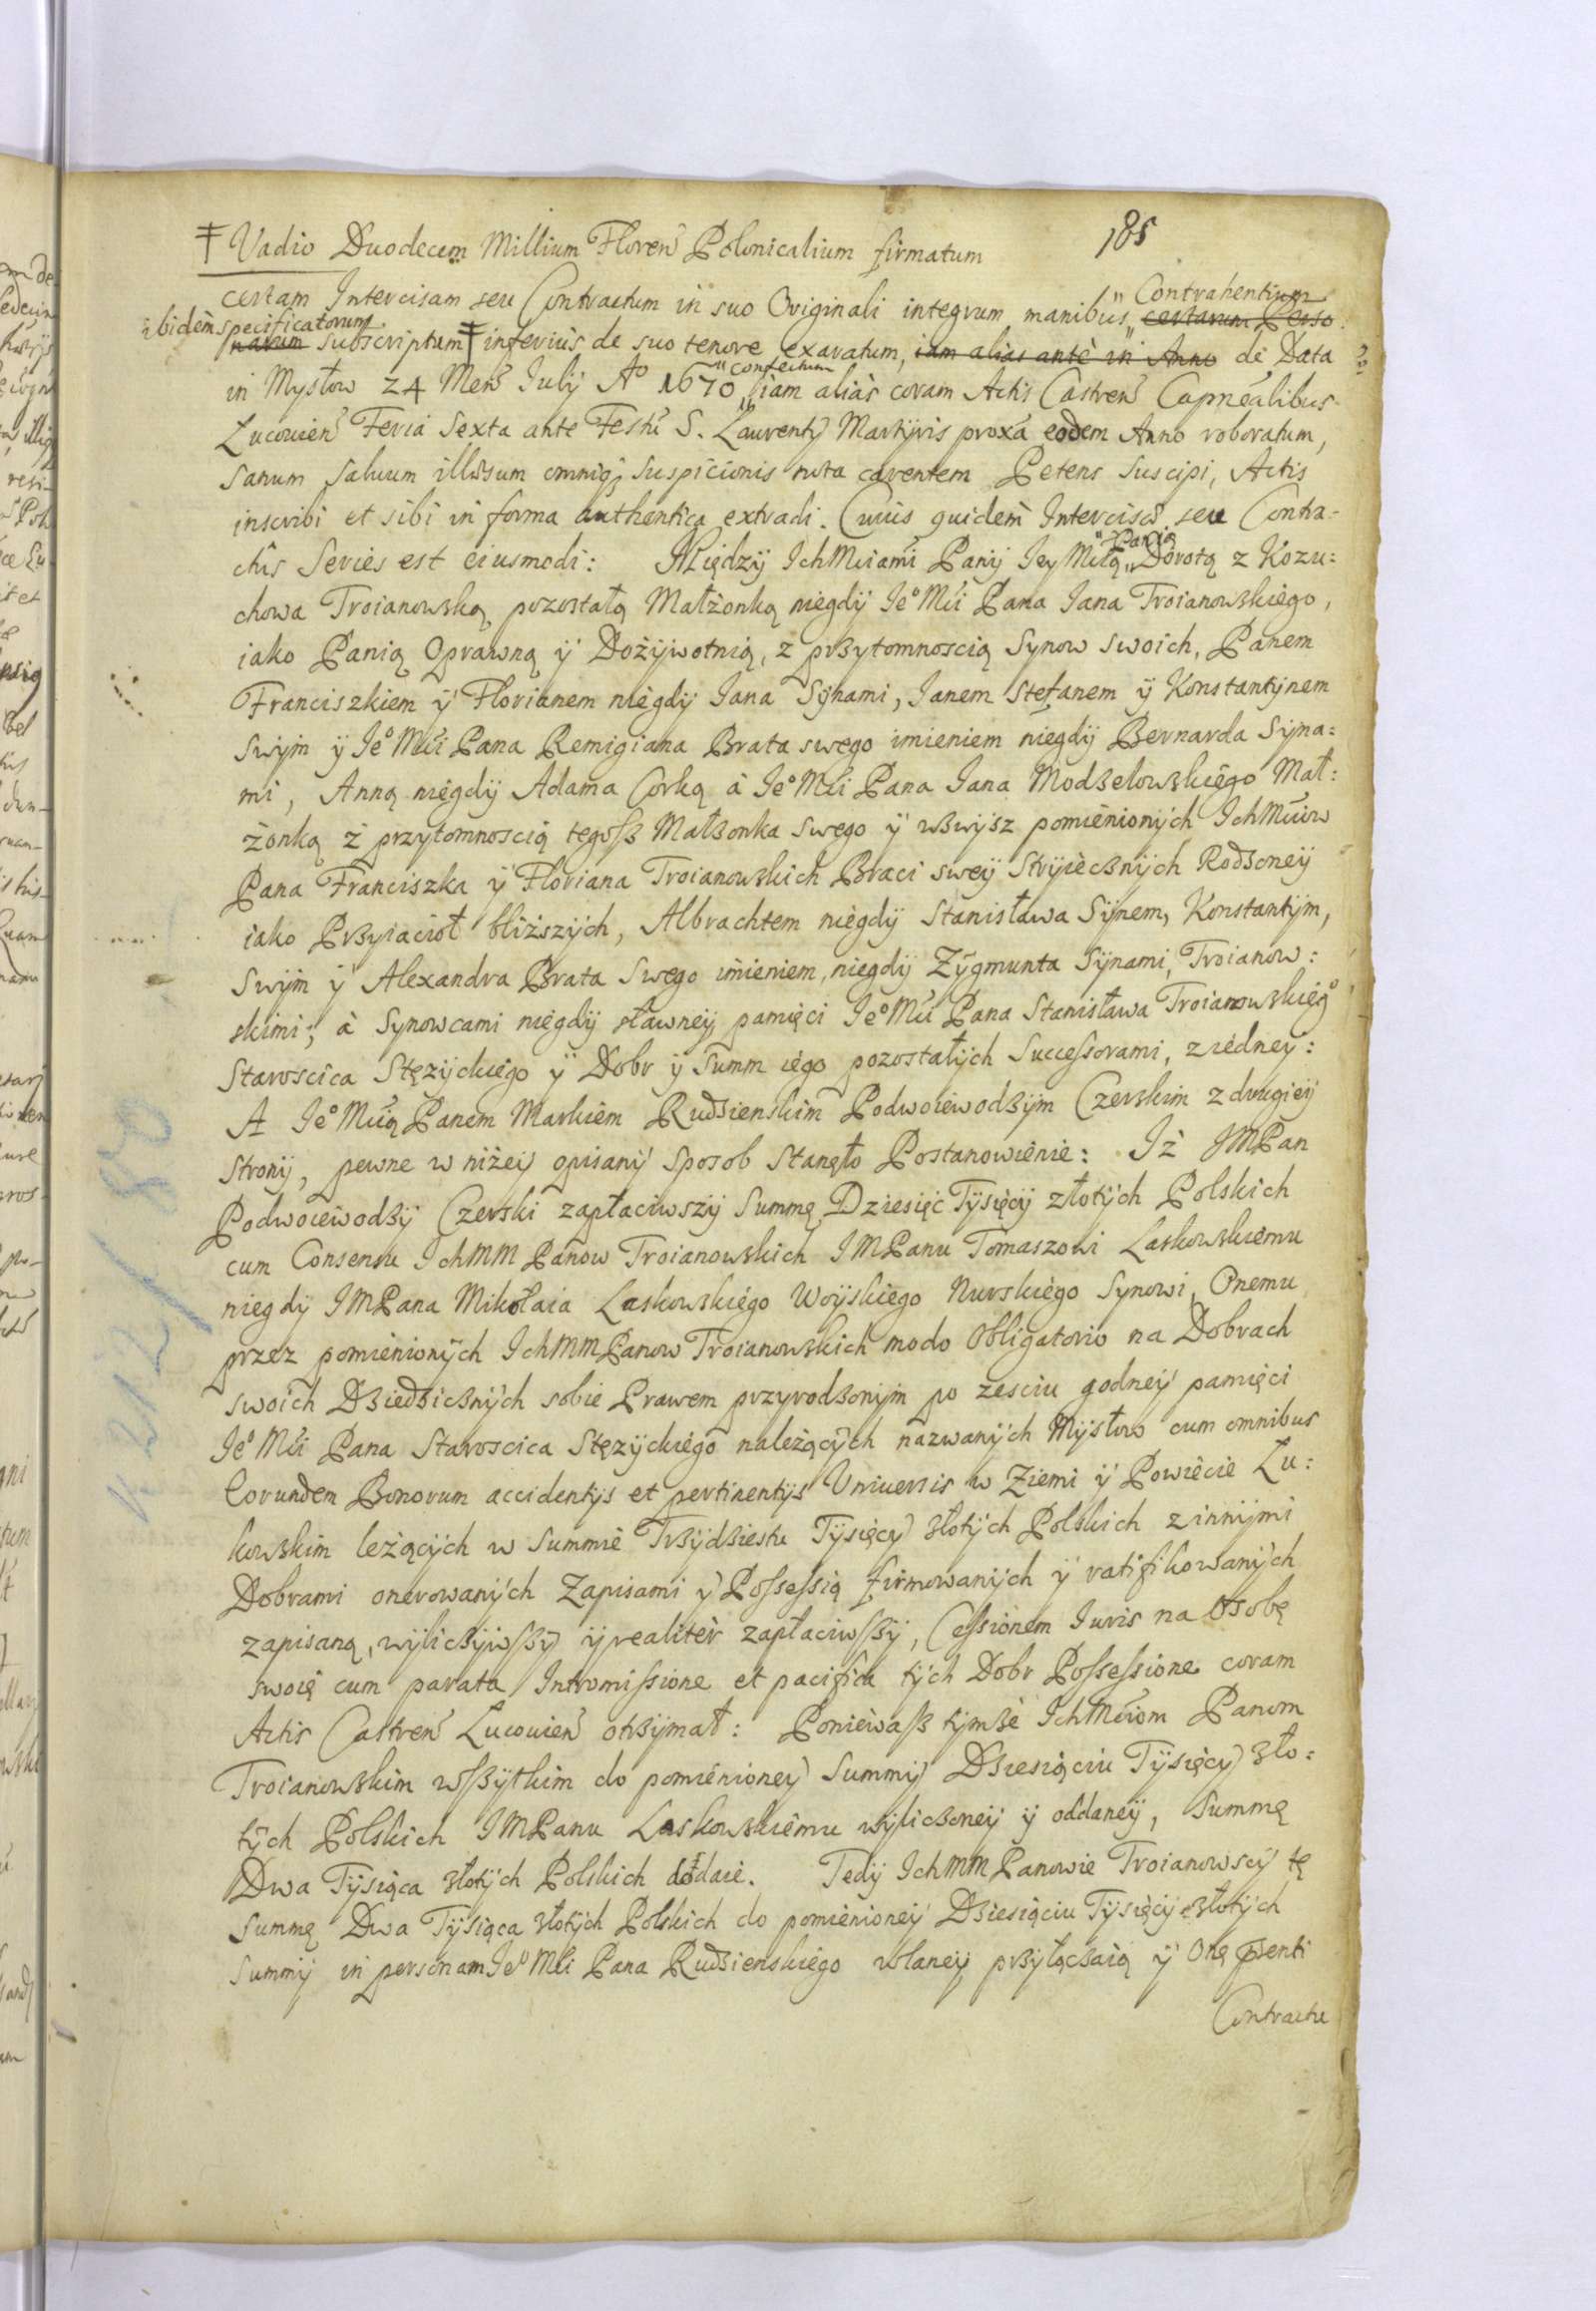 185
‡ Vadio Duodecem Millium Floreñ Polonicalium firmatum
certam Intercisam seu Contractum in suo Originali integrum manibus " Contrahentium certarum Perso
ibidem specificatorum narum subscriptum ‡ inferius de suo tenore exaratum, iam alias antè in Anno de Data
in Mysłow 24 Meñ July Aº 1670 " confectum iam aliàs coram Actis Castreñ Capnealibus
Lucovieñ Feria Sexta ante Festũ S. Laurenty Martyris proxa eodem Anno roboratum,
sanum saluum illæsum omniqꝫ suspicionis nota carentem Petens suscipi, Actis
inscribi et sibi in forma authentica extradi. Cuius quidem Intercisæ seu Contra-
ctũs Series est eiusmodi: Między IchMciami Panij Iey Mcią " Panią Dorotą z Kozu:
chowa Troianowską pozostałą Małżonką niegdy Ieº Mci Pana Iana Troianowskiego,
iako Panią Oprawną ÿ Dożywotnią, z przytomnoscią Synow swoich, Panem
Franciszkiem ÿ Florianem niegdy Iana Synami, Ianem Stefanem ÿ Konstantynem
swÿm ÿ Ieº Mci Pana Remigiana Brata swego imieniem niegdy Bernarda Syna:
mi, Anną niegdy Adama Corką à Ieº Mci Pana Iana Modzelowskiego Mał:
żonką z przytomnoscią tegosz Małzonka swego ÿ wzwysz pomienionych IchMciow
Pana Franciszka ÿ Floriana Troianowskich Braci sweÿ Stryiecznych Rodzoneÿ
iako Przyiacioł bliższych, Albrachtem niegdy Stanisława Synem, Konstantym,
swÿm ÿ Alexandra Brata swego imieniem, niegdy Zygmunta Synami, Troianow:
skimi; à Synowcami niegdy sławney pamięci Ieº Mci Pana Stanisława Troianowskiegº
Staroscica Stęzyckiego ÿ Dobr ÿ Summ iego pozostałych Successorami, z iedney:
A Ieº Mcią Panem Markiem Rudzienskim Podwoiewodzym Czerskim z drugiey
strony, pewne w niżey opisany sposob stanęło Postanowienie: Iż JMPan
Podwoiewodzy Czerski zapłaciwszy Summę Dziesięć Tysięcy złotych Polskich
cum Consensu IchMM Panow Troianowskich IMPanu Tomaszowi Laskowskiemu
niegdy IMPana Mikołaia Laskowskiego Woyskiego Nurskiego Synowi, Onemu
przez pomienionych IchMMPanow Troianowskich modo Obligatorio na Dobrach
swoich Dziedzicznych sobie Prawem przyrodzonym po zesciu godney pamięci
Ieº Mci Pana Staroscica Stęzyckiego należących nazwanych Mysłow cum omnibus
Eorundem Bonorum accidentys et pertinentys Vniuersis w Ziemi ÿ Powiecie Lu:
kowskim leżących w Summie Trzydziestu Tysięcy złotych Polskich z innymi
Dobrami onerowanych Zapisami ÿ Possessią firmowanych ÿ ratifikowanych
zapisaną, wyliczywszy ÿ realiter zapłaciwszy, Cessionem Iuris na Osobę
swoię cum parata Intromissione et pacifica tych Dobr Possessione coram
Actis Castreñ Lucovieñ otrzymał: Poniewasz tymże IchMciom Panom
Troianowskim wszytkim do pomienioney Summy Dziesiąciu Tysięcy zło:
tych Polskich IMPanu Laskowskiemu wyliczoney ÿ oddaney, Summę
Dwa Tysiąca złotych Polskich dodaie. Tedy IchMM Panowie Troianowscy tę
Summę Dwa Tysiąca złotych Polskich do pomienioney Dziesiąciu Tysięcy złotych
Summy in personam Ieº Mci Pana Rudzienskiego wlaney przyłączaią ÿ Onę pñenti
Contractu